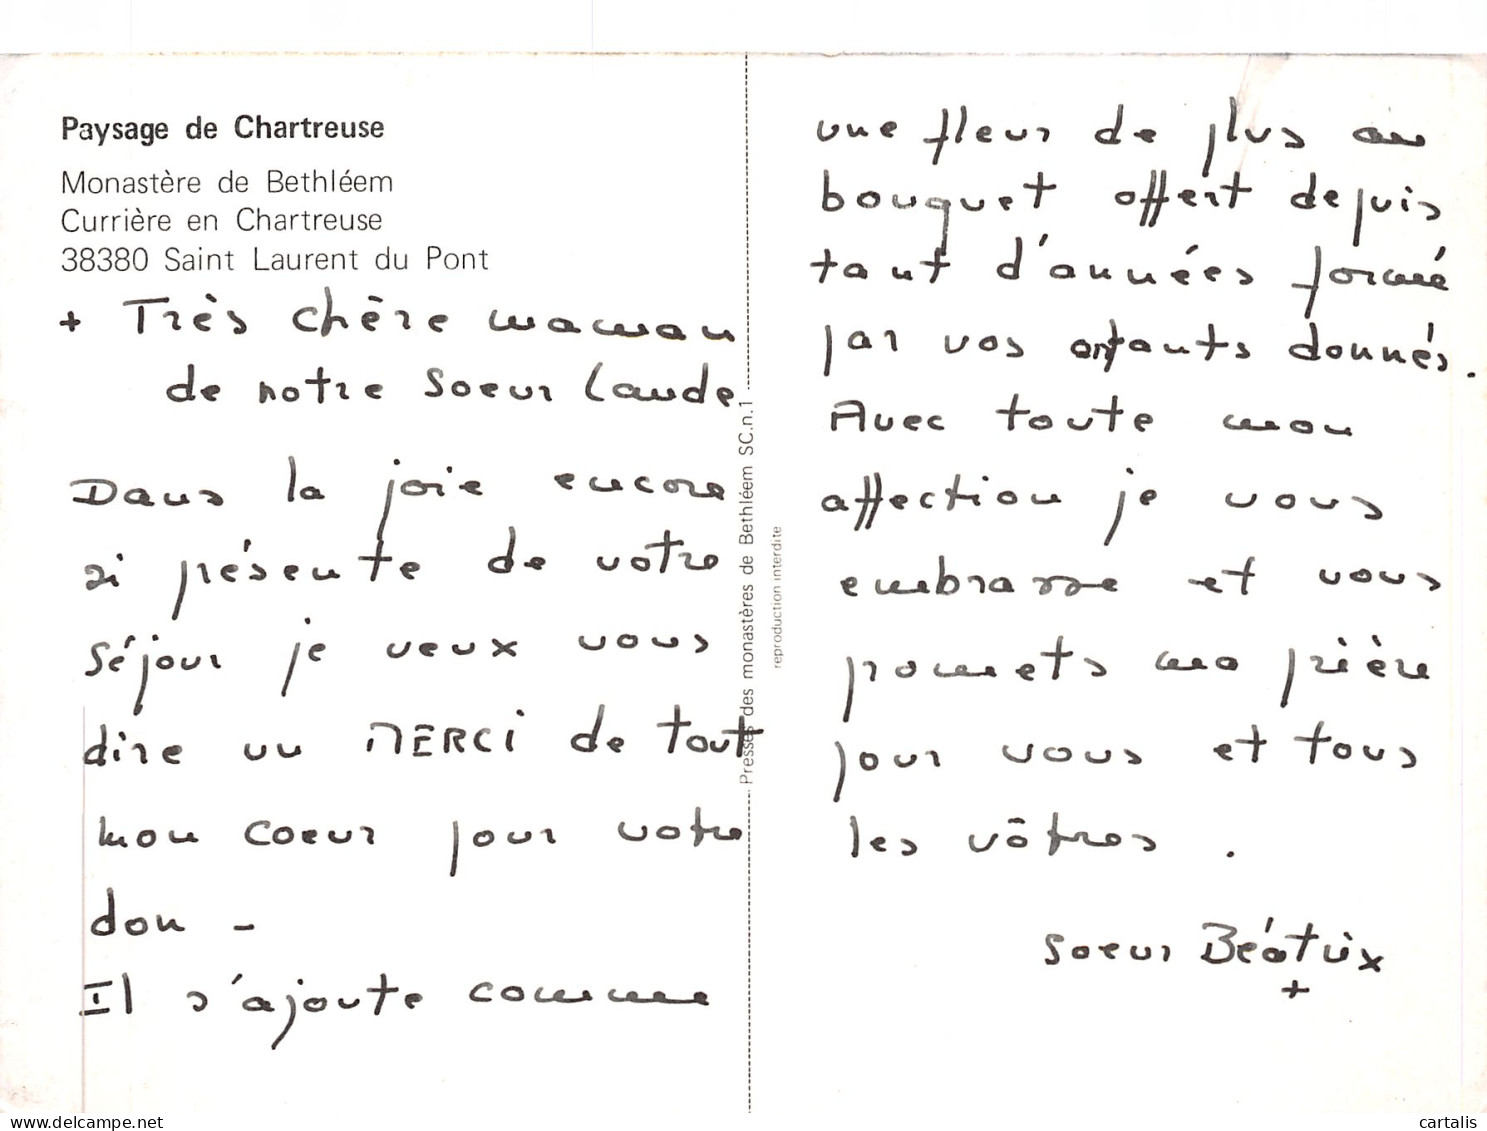 Paysage de Chartreuse
Monastère de Bethléem
Currière en Chartreuse
38380 Saint Laurent du Pont
+ Très chère maman
de notre Soeur Laude
Dans la joie encore
si présente de votre
séjour je veux vous
dire un MERCI de tout
mon coeur pour votre
don -
Il s'ajoute comme
Presses des monastères de Bethléem SC.n.1
reproduction interdite
une fleur de plus au
bouquet offert depuis
tant d'années formé
par vos enfants donnés.
Avec toute mon
affection je vous
embrasse et vous
promets ma prière
pour vous et tous
les vôtres.
Soeur Béatrix
+
www.delcampe.net
cartalis